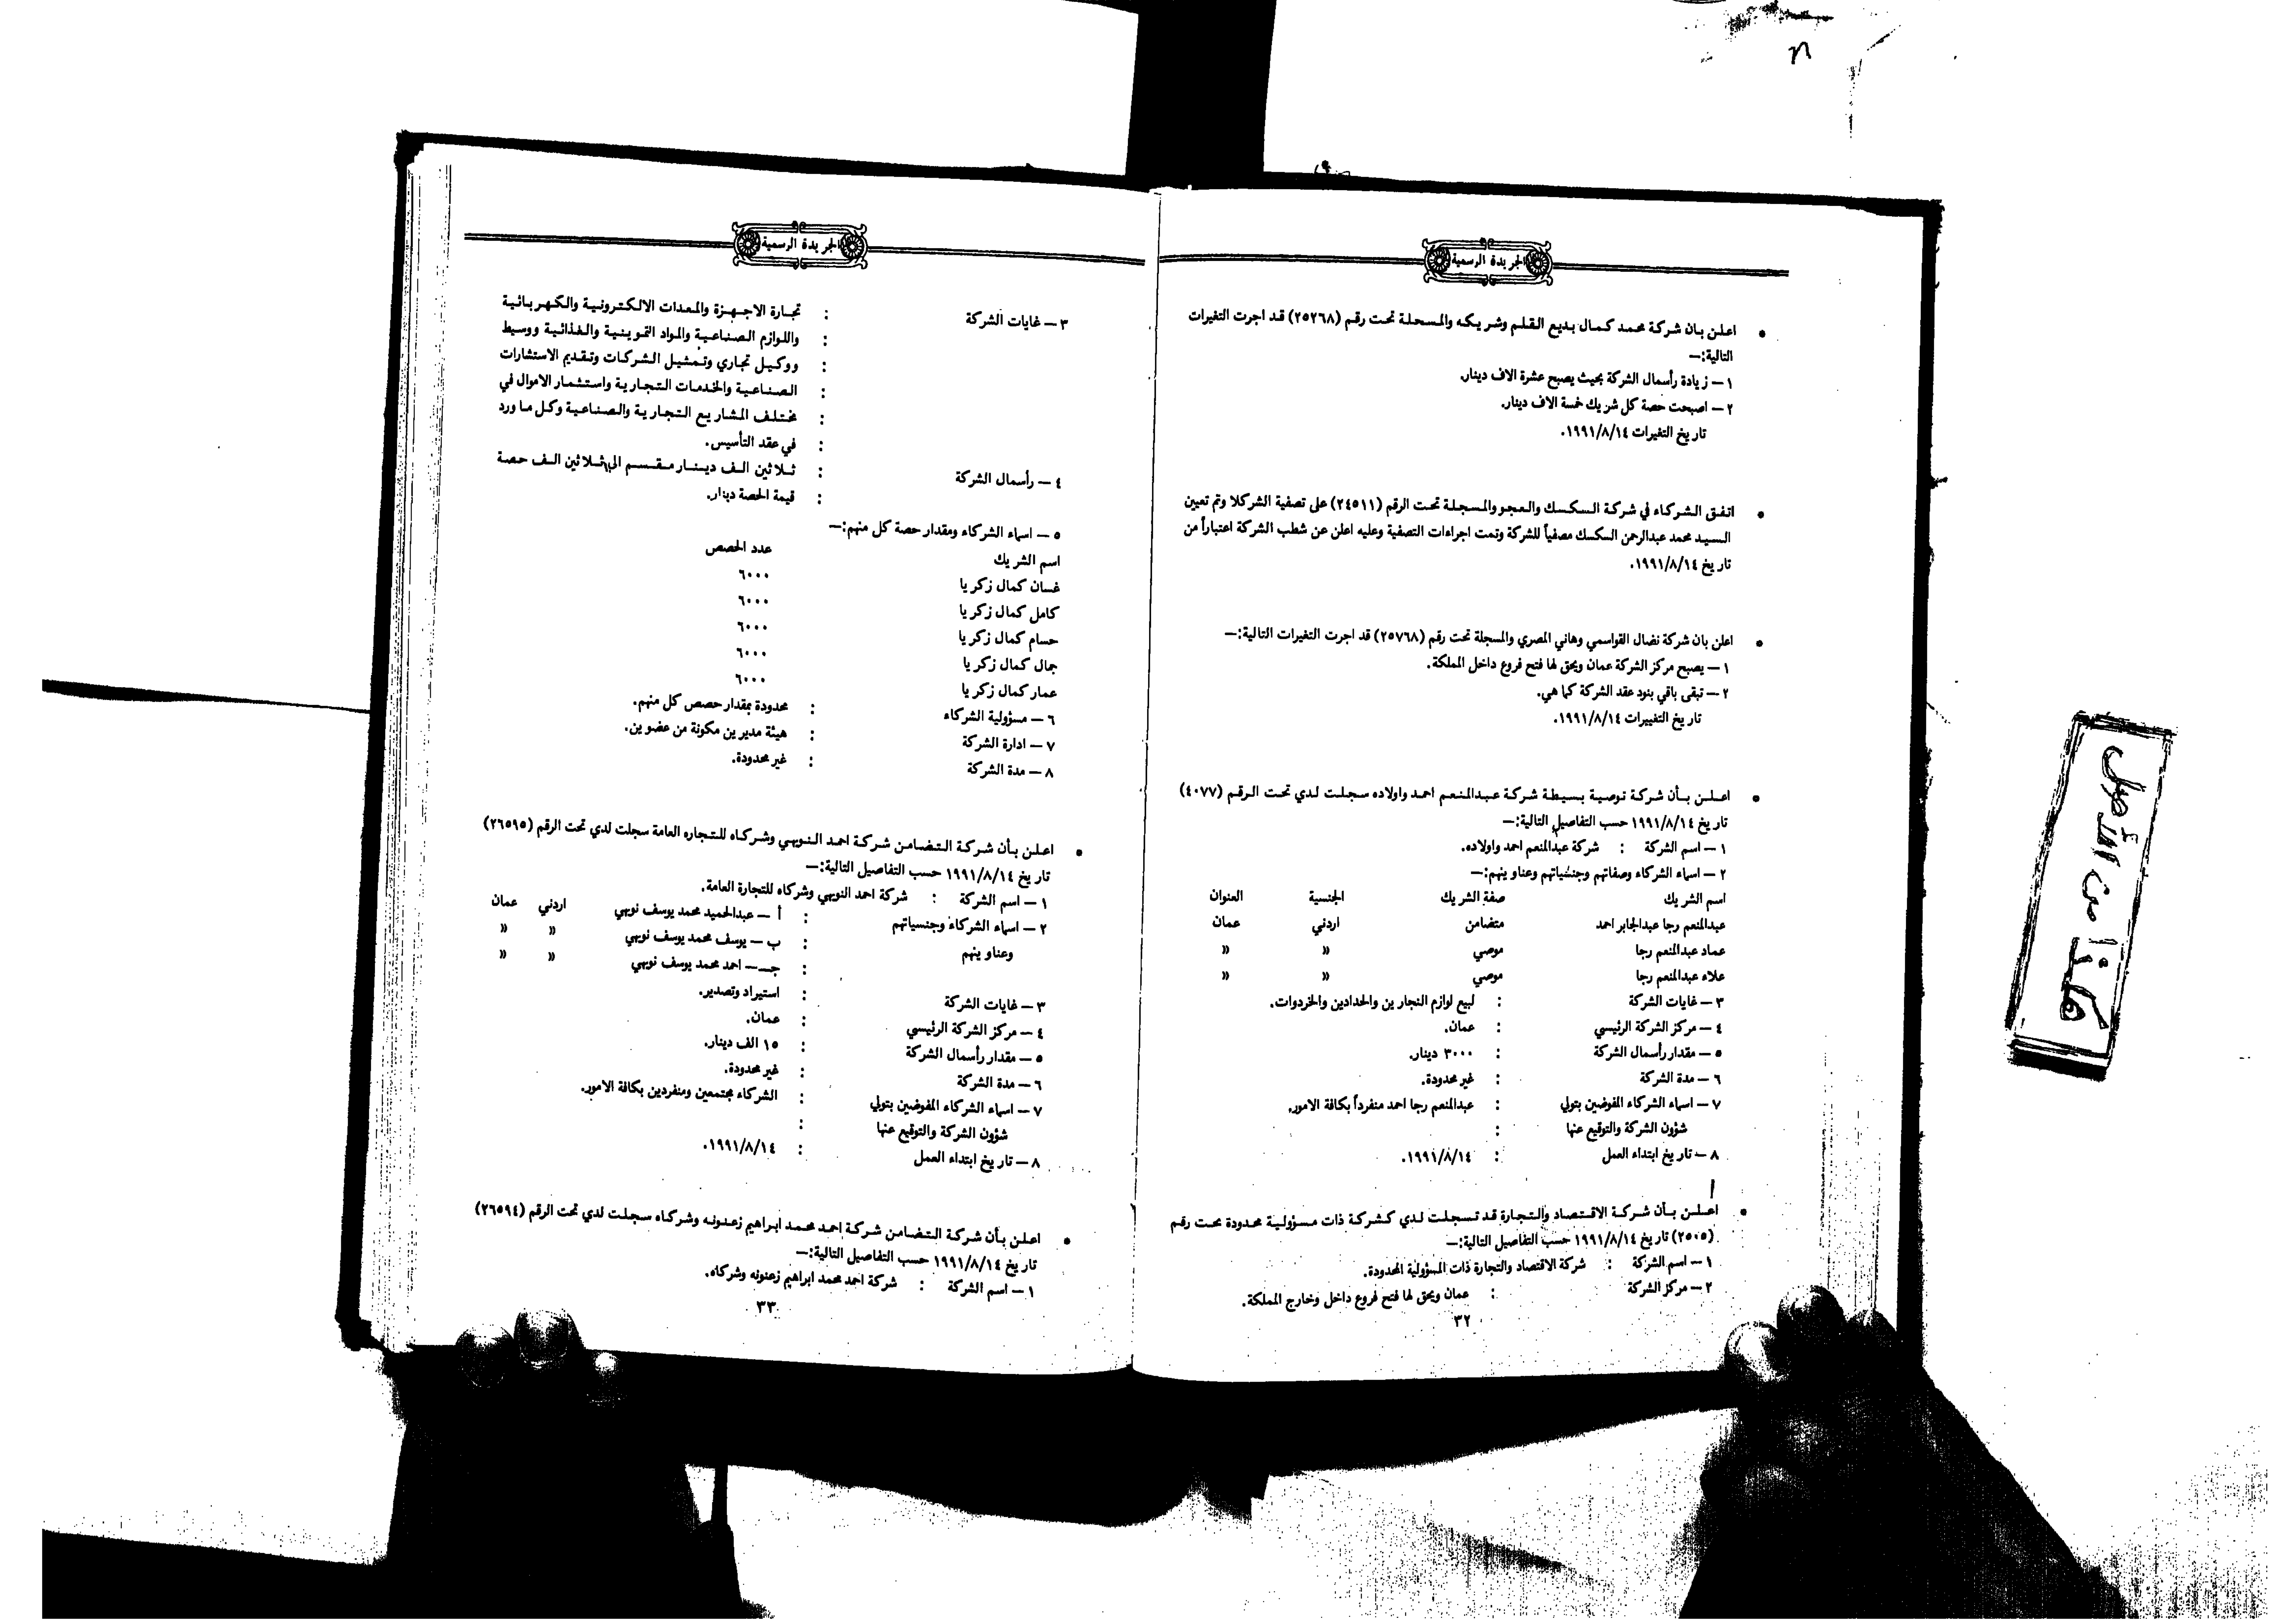 الجريدة الرسمية
• اعلن بان شركة محمد كمال بديع القلم وشريكه والمسحلة تحت رقم (٢٥٢٦٨) قد اجرت التغيرات
التالية:—
١ — زيادة رأسمال الشركة بحيث يصبح عشرة الاف دينار.
٢ — اصبحت حصة كل شريك خمسة الاف دينار.
تاريخ التغيرات ١٩٩١/٨/١٤.
• اتفق الشركاء في شركة السكسك والعجو والمسجلة تحت الرقم (٢٤٥١١) على تصفية الشركلا وتم تعيين
السيد محمد عبدالرحمن السكسك مصفياً للشركة وتمت اجراءات التصفية وعليه اعلن عن شطب الشركة اعتباراً من
تاريخ ١٩٩١/٨/١٤.
• اعلن بان شركة نضال القواسمي وهاني المصري والمسجلة تحت رقم (٢٥٧٦٨) قد اجرت التغيرات التالية:—
١ — يصبح مركز الشركة عمان ويحق لها فتح فروع داخل المملكة.
٢ — تبقى باقي بنود عقد الشركة كما هي.
تاريخ التغييرات ١٩٩١/٨/١٤.
• اعلن بأن شركة توصية بسيطة شركة عبدالمنعم احمد واولاده سجلت لدي تحت الرقم (٤٠٧٧)
تاريخ ١٩٩١/٨/١٤ حسب التفاصيل التالية:—
١ — اسم الشركة : شركة عبدالمنعم احمد واولاده.
٢ — اسماء الشركاء وصفاتهم وجنسياتهم وعناوينهم:—
اسم الشريك صفة الشريك الجنسية العنوان
عبدالمنعم رجا عبدالجابر احمد متضامن اردني عمان
عماد عبدالمنعم رجا موصي » »
علاء عبدالمنعم رجا موصي » »
٣ — غايات الشركة : لبيع لوازم النجارين والحدادين والخردوات.
٤ — مركز الشركة الرئيسي : عمان.
٥ — مقدار رأسمال الشركة : ٣٠٠٠ دينار.
٦ — مدة الشركة : غير محدودة.
٧ — اسماء الشركاء المفوضين بتولي : عبدالمنعم رجا احمد منفرداً بكافة الامور.
شؤون الشركة والتوقيع عنها :
٨ — تاريخ ابتداء العمل : ١٩٩١/٨/١٤.
• اعلن بأن شركة الاقتصاد والتجارة قد تسجلت لدي كشركة ذات مسؤولية محدودة تحت رقم
(٢٥٠٥) تاريخ ١٩٩١/٨/١٤ حسب التفاصيل التالية:—
١ — اسم الشركة : شركة الاقتصاد والتجارة ذات المسؤولية المحدودة.
٢ — مركز الشركة : عمان ويحق لها فتح فروع داخل وخارج المملكة.
٣٢
الجريدة الرسمية
٣ — غايات الشركة : تجارة الاجهزة والمعدات الالكترونية والكهربائية
: واللوازم الصناعية والمواد التموينية والغذائية ووسيط
: ووكيل تجاري وتمثيل الشركات وتقديم الاستشارات
: الصناعية والخدمات التجارية واستثمار الاموال في
: مختلف المشاريع التجارية والصناعية وكل ما ورد
: في عقد التأسيس.
٤ — رأسمال الشركة : ثلاثين الف دينار مقسم الى ثلاثين الف حصة
: قيمة الحصة دينار.
٥ — اسماء الشركاء ومقدار حصة كل منهم:—
اسم الشريك عدد الحصص
غسان كمال زكريا ٦٠٠٠
كامل كمال زكريا ٦٠٠٠
حسام كمال زكريا ٦٠٠٠
جمال كمال زكريا ٦٠٠٠
عمار كمال زكريا ٦٠٠٠
٦ — مسؤولية الشركاء : محدودة بمقدار حصص كل منهم.
٧ — ادارة الشركة : هيئة مديرين مكونة من عضوين.
٨ — مدة الشركة : غير محدودة.
• اعلن بأن شركة التضامن شركة احمد النويهي وشركاه للتجاره العامة سجلت لدي تحت الرقم (٢٦٥٩٥)
تاريخ ١٩٩١/٨/١٤ حسب التفاصيل التالية:—
١ — اسم الشركة : شركة احمد النويهي وشركاه للتجارة العامة.
٢ — اسماء الشركاء وجنسياتهم : أ — عبدالحميد محمد يوسف نويهي اردني عمان
وعناوينهم : ب — يوسف محمد يوسف نويهي » »
: جـ — احمد محمد يوسف نويهي » »
٣ — غايات الشركة : استيراد وتصدير.
٤ — مركز الشركة الرئيسي : عمان.
٥ — مقدار رأسمال الشركة : ١٥ الف دينار.
٦ — مدة الشركة : غير محدودة.
٧ — اسماء الشركاء المفوضين بتولي : الشركاء مجتمعين ومنفردين بكافة الامور.
شؤون الشركة والتوقيع عنها :
٨ — تاريخ ابتداء العمل : ١٩٩١/٨/١٤.
• اعلن بأن شركة التضامن شركة احمد محمد ابراهيم زعنونه وشركاه سجلت لدي تحت الرقم (٢٦٥٩٤)
تاريخ ١٩٩١/٨/١٤ حسب التفاصيل التالية:—
١ — اسم الشركة : شركة احمد محمد ابراهيم زعنونه وشركاه.
٣٣
هكذا من الأصل